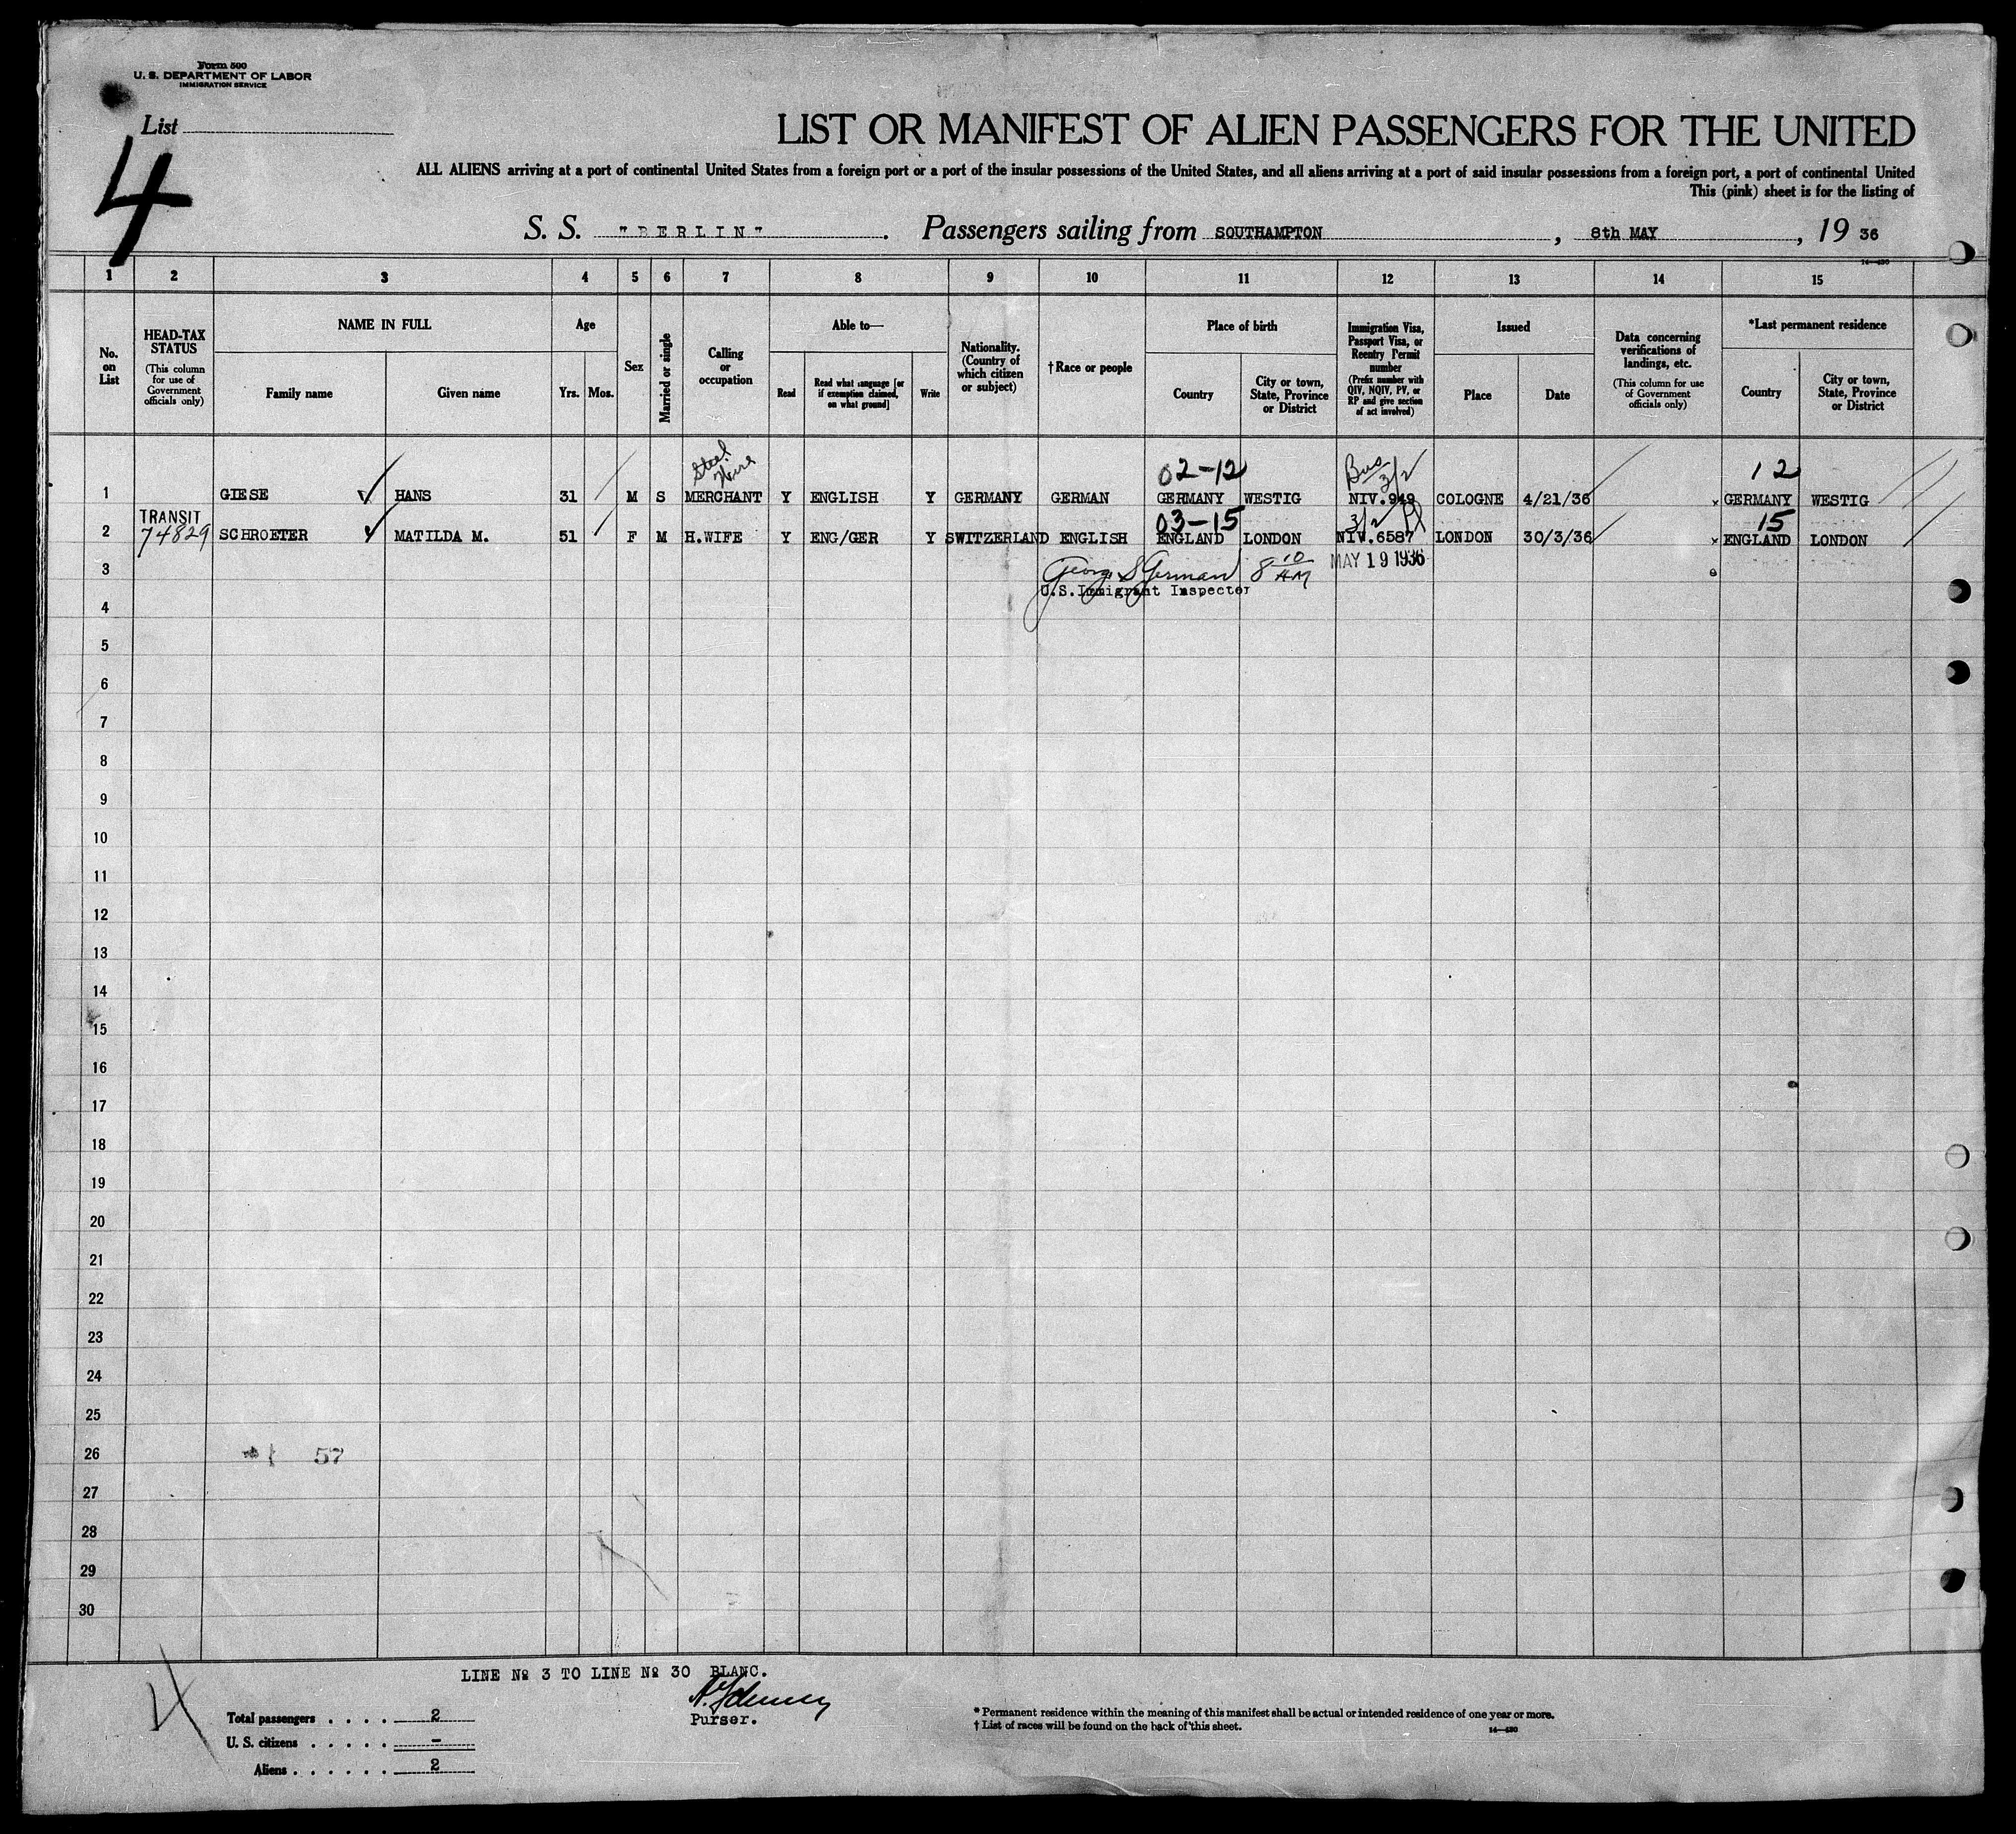 Form 500
U. S. DEPARTMENT OF LABOR
IMMIGRATION SERVICE
List
4
LIST OR MANIFEST OF ALIEN PASSENGERS FOR THE UNITED
ALL ALIENS arriving at a port of continental United States from a foreign port or a port of the insular possessions of the United States, and all aliens arriving at a port of said insular possessions from a foreign port, a port of continental United
This (pink) sheet is for the listing of
S. S. "BERLIN". Passengers sailing from SOUTHAMPTON, 8th MAY, 19 36
14-480
1 2 3 4 5 6 7 8 9 10 11 12 13 14 15
No. on List
HEAD-TAX STATUS
(This column for use of Government officials only)
NAME IN FULL
Family name
Given name
Age
Yrs. Mos.
Sex
Married or single
Calling or occupation
Able to—
Read
Read what language [or if exemption claimed, on what ground]
Write
Nationality. (Country of which citizen or subject)
†Race or people
Place of birth
Country
City or town, State, Province or District
Immigration Visa, Passport Visa, or Reentry Permit number
(Prefix number with QIV, NQIV, PV, or RP and give section of act involved)
Issued
Place
Date
Data concerning verifications of landings, etc.
(This column for use of Government officials only)
*Last permanent residence
Country
City or town, State, Province or District
Steel Wire 02-12 Bus 3/2 12
1 GIESE HANS 31 M S MERCHANT Y ENGLISH Y GERMANY GERMAN GERMANY WESTIG NIV.949 COLOGNE 4/21/36 x GERMANY WESTIG
TRANSIT 03-15 3/2 15
2 74829 SCHROETER MATILDA M. 51 F M H.WIFE Y ENG/GER Y SWITZERLAND ENGLISH ENGLAND LONDON NIV.6587 LONDON 30/3/36 x ENGLAND LONDON
3 George S German 8 10 AM MAY 19 1936
U.S.Immigrant Inspector
4
5
6
7
8
9
10
11
12
13
14
15
16
17
18
19
20
21
22
23
24
25
26 57
27
28
29
30
LINE No 3 TO LINE No 30 BLANC.
Purser.
Total passengers . . . . 2
U. S. citizens . . . . . -
Aliens . . . . . . 2
* Permanent residence within the meaning of this manifest shall be actual or intended residence of one year or more.
† List of races will be found on the back of this sheet.
14-480